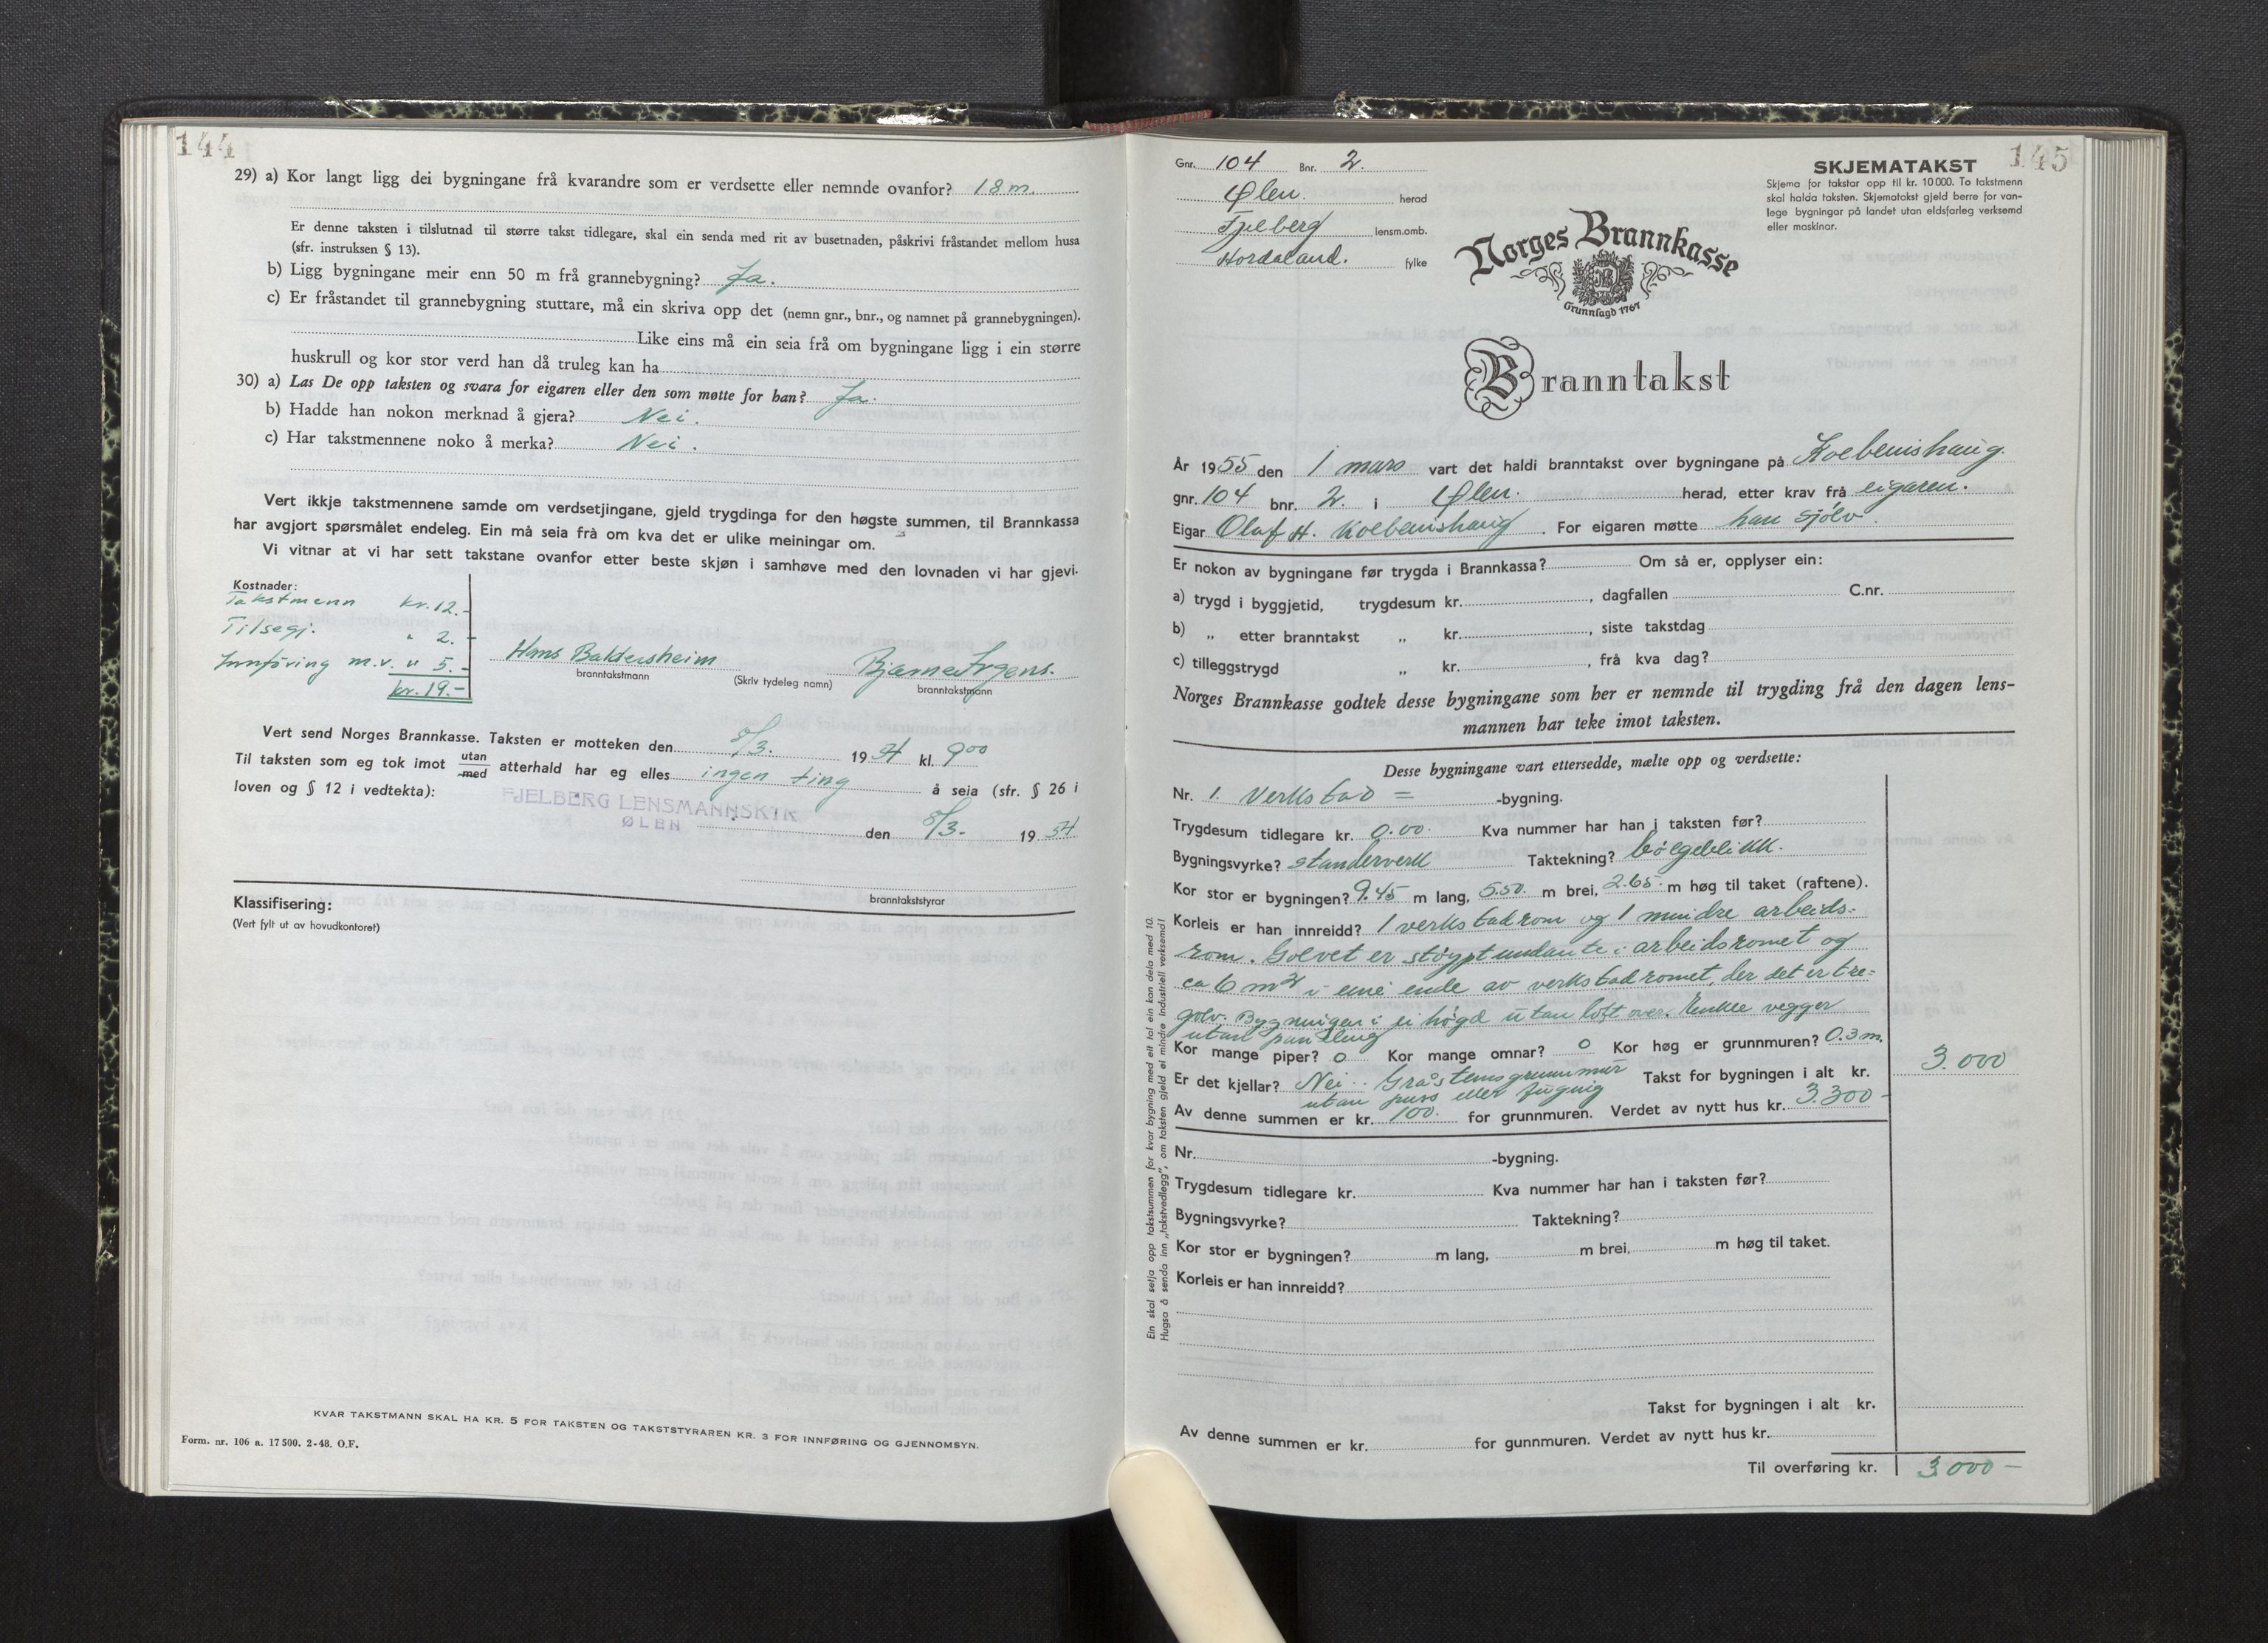 144
29) a) Kor langt ligg dei bygningane frå kvarandre som er verdsette eller nemnde ovanfor? 18 m.
Er denne taksten i tilslutnad til større takst tidlegare, skal ein senda med rit av busetnaden, påskrivi fråstandet mellom husa
(sfr. instruksen § 13).
b) Ligg bygningane meir enn 50 m frå grannebygning? Ja.
c) Er fråstandet til grannebygning stuttare, må ein skriva opp det (nemn gnr., bnr., og namnet på grannebygningen).
Like eins må ein seia frå om bygningane ligg i ein større
huskrull og kor stor verd han då truleg kan ha
30) a) Las De opp taksten og svara for eigaren eller den som møtte for han? Ja.
b) Hadde han nokon merknad å gjera? Nei.
c) Har takstmennene noko å merka? Nei.
Vert ikkje takstmennene samde om verdsetjingane, gjeld trygdinga for den høgste summen, til Brannkassa
har avgjort spørsmålet endeleg. Ein må seia frå om kva det er ulike meiningar om.
Vi vitnar at vi har sett takstane ovanfor etter beste skjøn i samhøve med den lovnaden vi har gjevi.
Kostnader:
Takstmenn kr. 12.-
Tilsegj. " 2.-
Innföring m.v. " 5.-
kr. 19.-
Hans Baldersheim
Bjarne Irgens.
branntakstmann (Skriv tydeleg namn) branntakstmann
Vert send Norges Brannkasse. Taksten er motteken den 8/3. 1954 kl. 9 00
Til taksten som eg tok imot utan/med atterhald har eg elles ingen ting å seia (sfr. § 26 i
loven og § 12 i vedtekta):
FJELBERG LENSMANNSKTR
ØLEN
den 8/3. 1954
branntakststyrar
Klassifisering:
(Vert fylt ut av hovudkontoret)
KVAR TAKSTMANN SKAL HA KR. 5 FOR TAKSTEN OG TAKSTSTYRAREN KR. 3 FOR INNFØRING OG GJENNOMSYN.
Form. nr. 106 a. 17500. 2-48. O.F.
145
Gnr. 104 Bnr. 2.
Ølen. herad
Fjelberg lensm.omb.
Hordaland. fylke
SKJEMATAKST
Skjema for takstar opp til kr. 10 000. To takstmenn
skal halda taksten. Skjematakst gjeld berre for van-
lege bygningar på landet utan eldsfarleg verksemd
eller maskinar.
Norges Brannkasse
Grunnlagd 1767
Branntakst
År 1955 den 1 mars vart det haldi branntakst over bygningane på Kolbeinshaug.
gnr. 104 bnr. 2. i Ølen. herad, etter krav frå eigaren.
Eigar Olaf H. Kolbeinshaug. For eigaren møtte han sjölv.
Er nokon av bygningane før trygda i Brannkassa? Om så er, opplyser ein:
a) trygd i byggjetid, trygdesum kr. , dagfallen C.nr.
b) „ etter branntakst „ kr. , siste takstdag
c) tilleggstrygd „ kr. , frå kva dag?
Norges Brannkasse godtek desse bygningane som her er nemnde til trygding frå den dagen lens-
mannen har teke imot taksten.
Desse bygningane vart ettersedde, mælte opp og verdsette:
Nr. 1. Verkstad = -bygning.
Trygdesum tidlegare kr. 0.00. Kva nummer har han i taksten før?
Bygningsvyrke? standerverk Taktekning? bölgeblikk.
Kor stor er bygningen? 9.45 m lang, 5.50. m brei, 2.65. m høg til taket (raftene).
Korleis er han innreidd? 1 verkstadrom og 1 mindre arbeids-
rom. Golvet er stöypt undante i arbeidsromet og
ca 6 m² i eine ende av verkstadromet, der det er tre=
golv. Bygningen i ei högd utan loft over. Enkle vegger
utan panelling
Kor mange piper? 0 Kor mange omnar? 0 Kor høg er grunnmuren? 0.3 m.
Er det kjellar? Nei. Gråsteinsgrunnmur Takst for bygningen i alt kr. 3.000
utan puss eller fuging
Av denne summen er kr. 100. for grunnmuren. Verdet av nytt hus kr. 3.300-
Nr. -bygning.
Trygdesum tidlegare kr. Kva nummer har han i taksten før?
Bygningsvyrke? Taktekning?
Kor stor er bygningen? m lang, m brei, m høg til taket.
Korleis er han innreidd?
Takst for bygningen i alt kr.
Av denne summen er kr. for gunnmuren. Verdet av nytt hus kr.
Til overføring kr. 3.000-
Ein skal setja opp takstsummen for kvar bygning med eit tal ein kan dela med 10.
Hugsa å senda inn „takstvedlegg", om taksten gjeld ei mindre industriell verksemd!